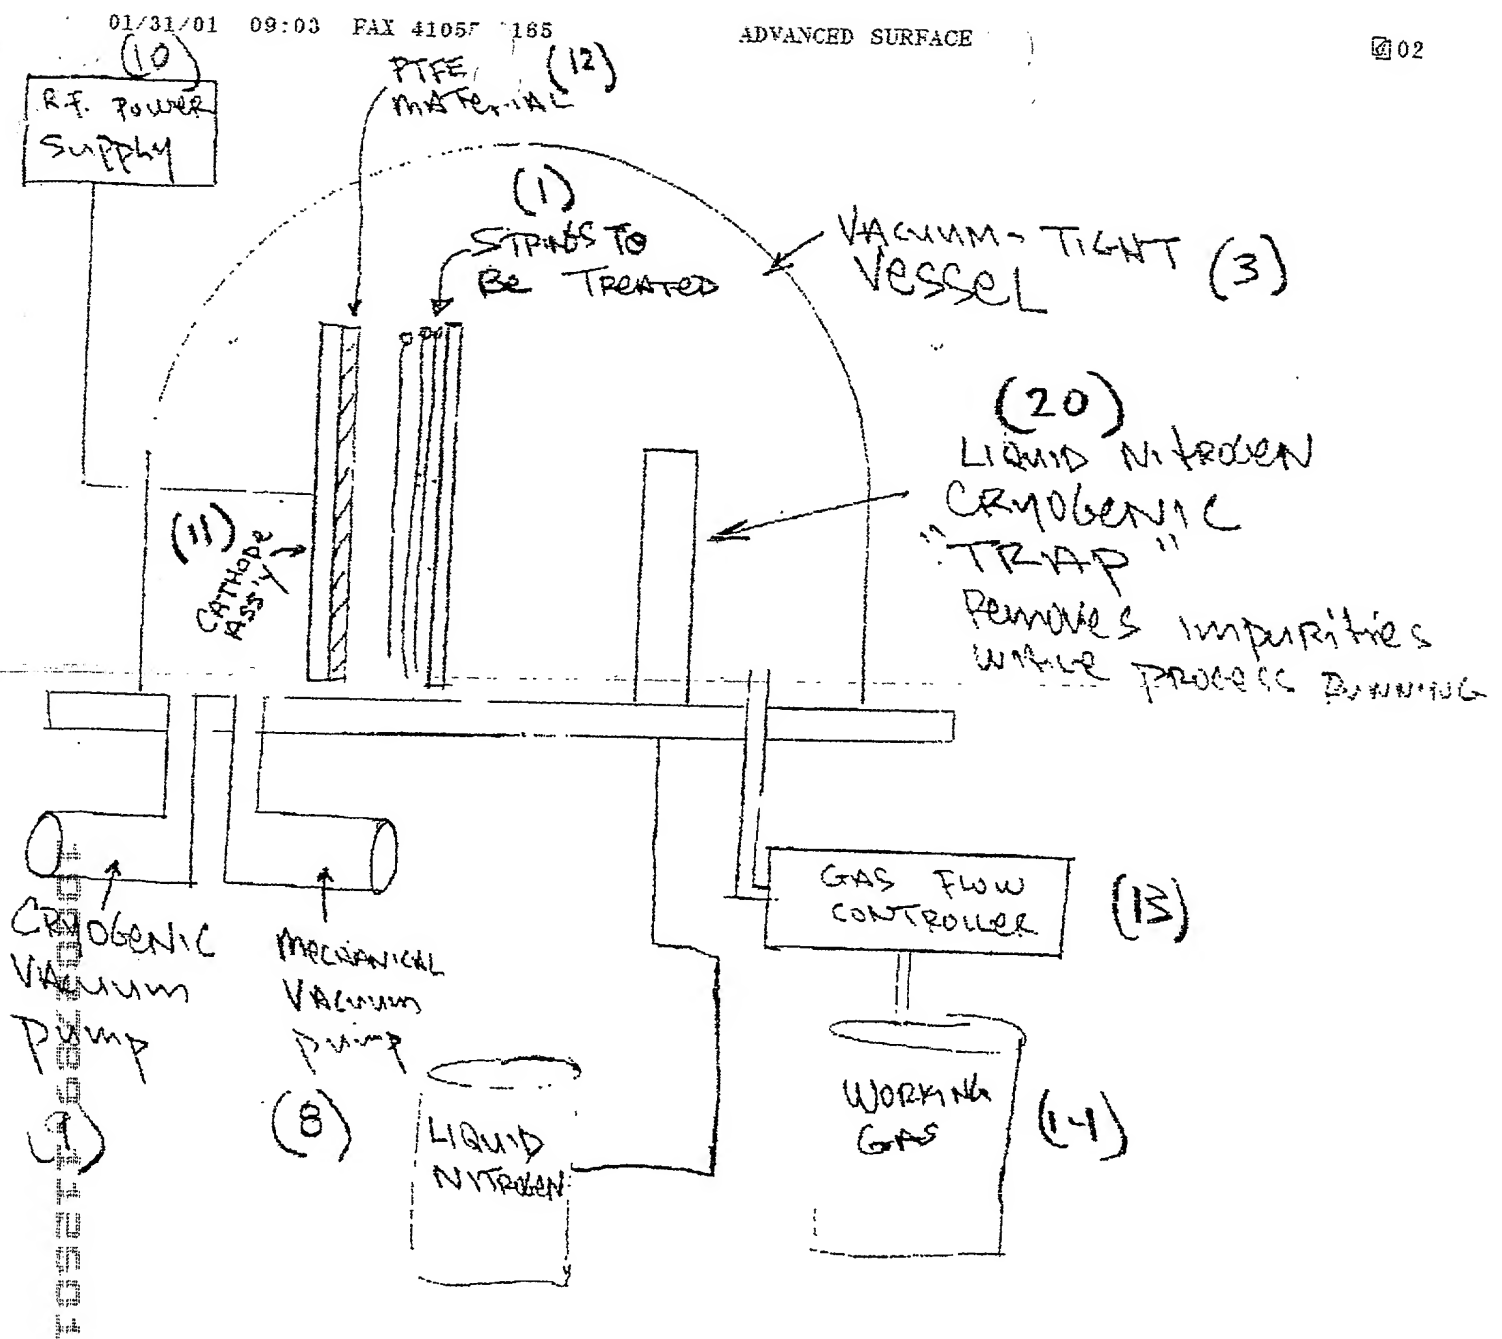 01/31/01 09:03 FAX 41055 165 ADVANCED SURFACE 02
(10)
R.F. POWER
Supply
PTFE (12)
MATERIAL
(1)
STRINGS TO
Be TREATED
VACUUM-TIGHT (3)
VesseL
(20)
LIQUID NITROGEN
CRYOGENIC
"TRAP"
Removes impurities
WHILE PROCESS RUNNING
(11)
CATHODE
ASS'Y
CRYOGENIC
VACUUM
pump
(9)
MECHANICAL
VACUUM
pump
(8)
LIQUID
NITROGEN
GAS FLOW
CONTROLLER
(13)
WORKING
GAS
(14)